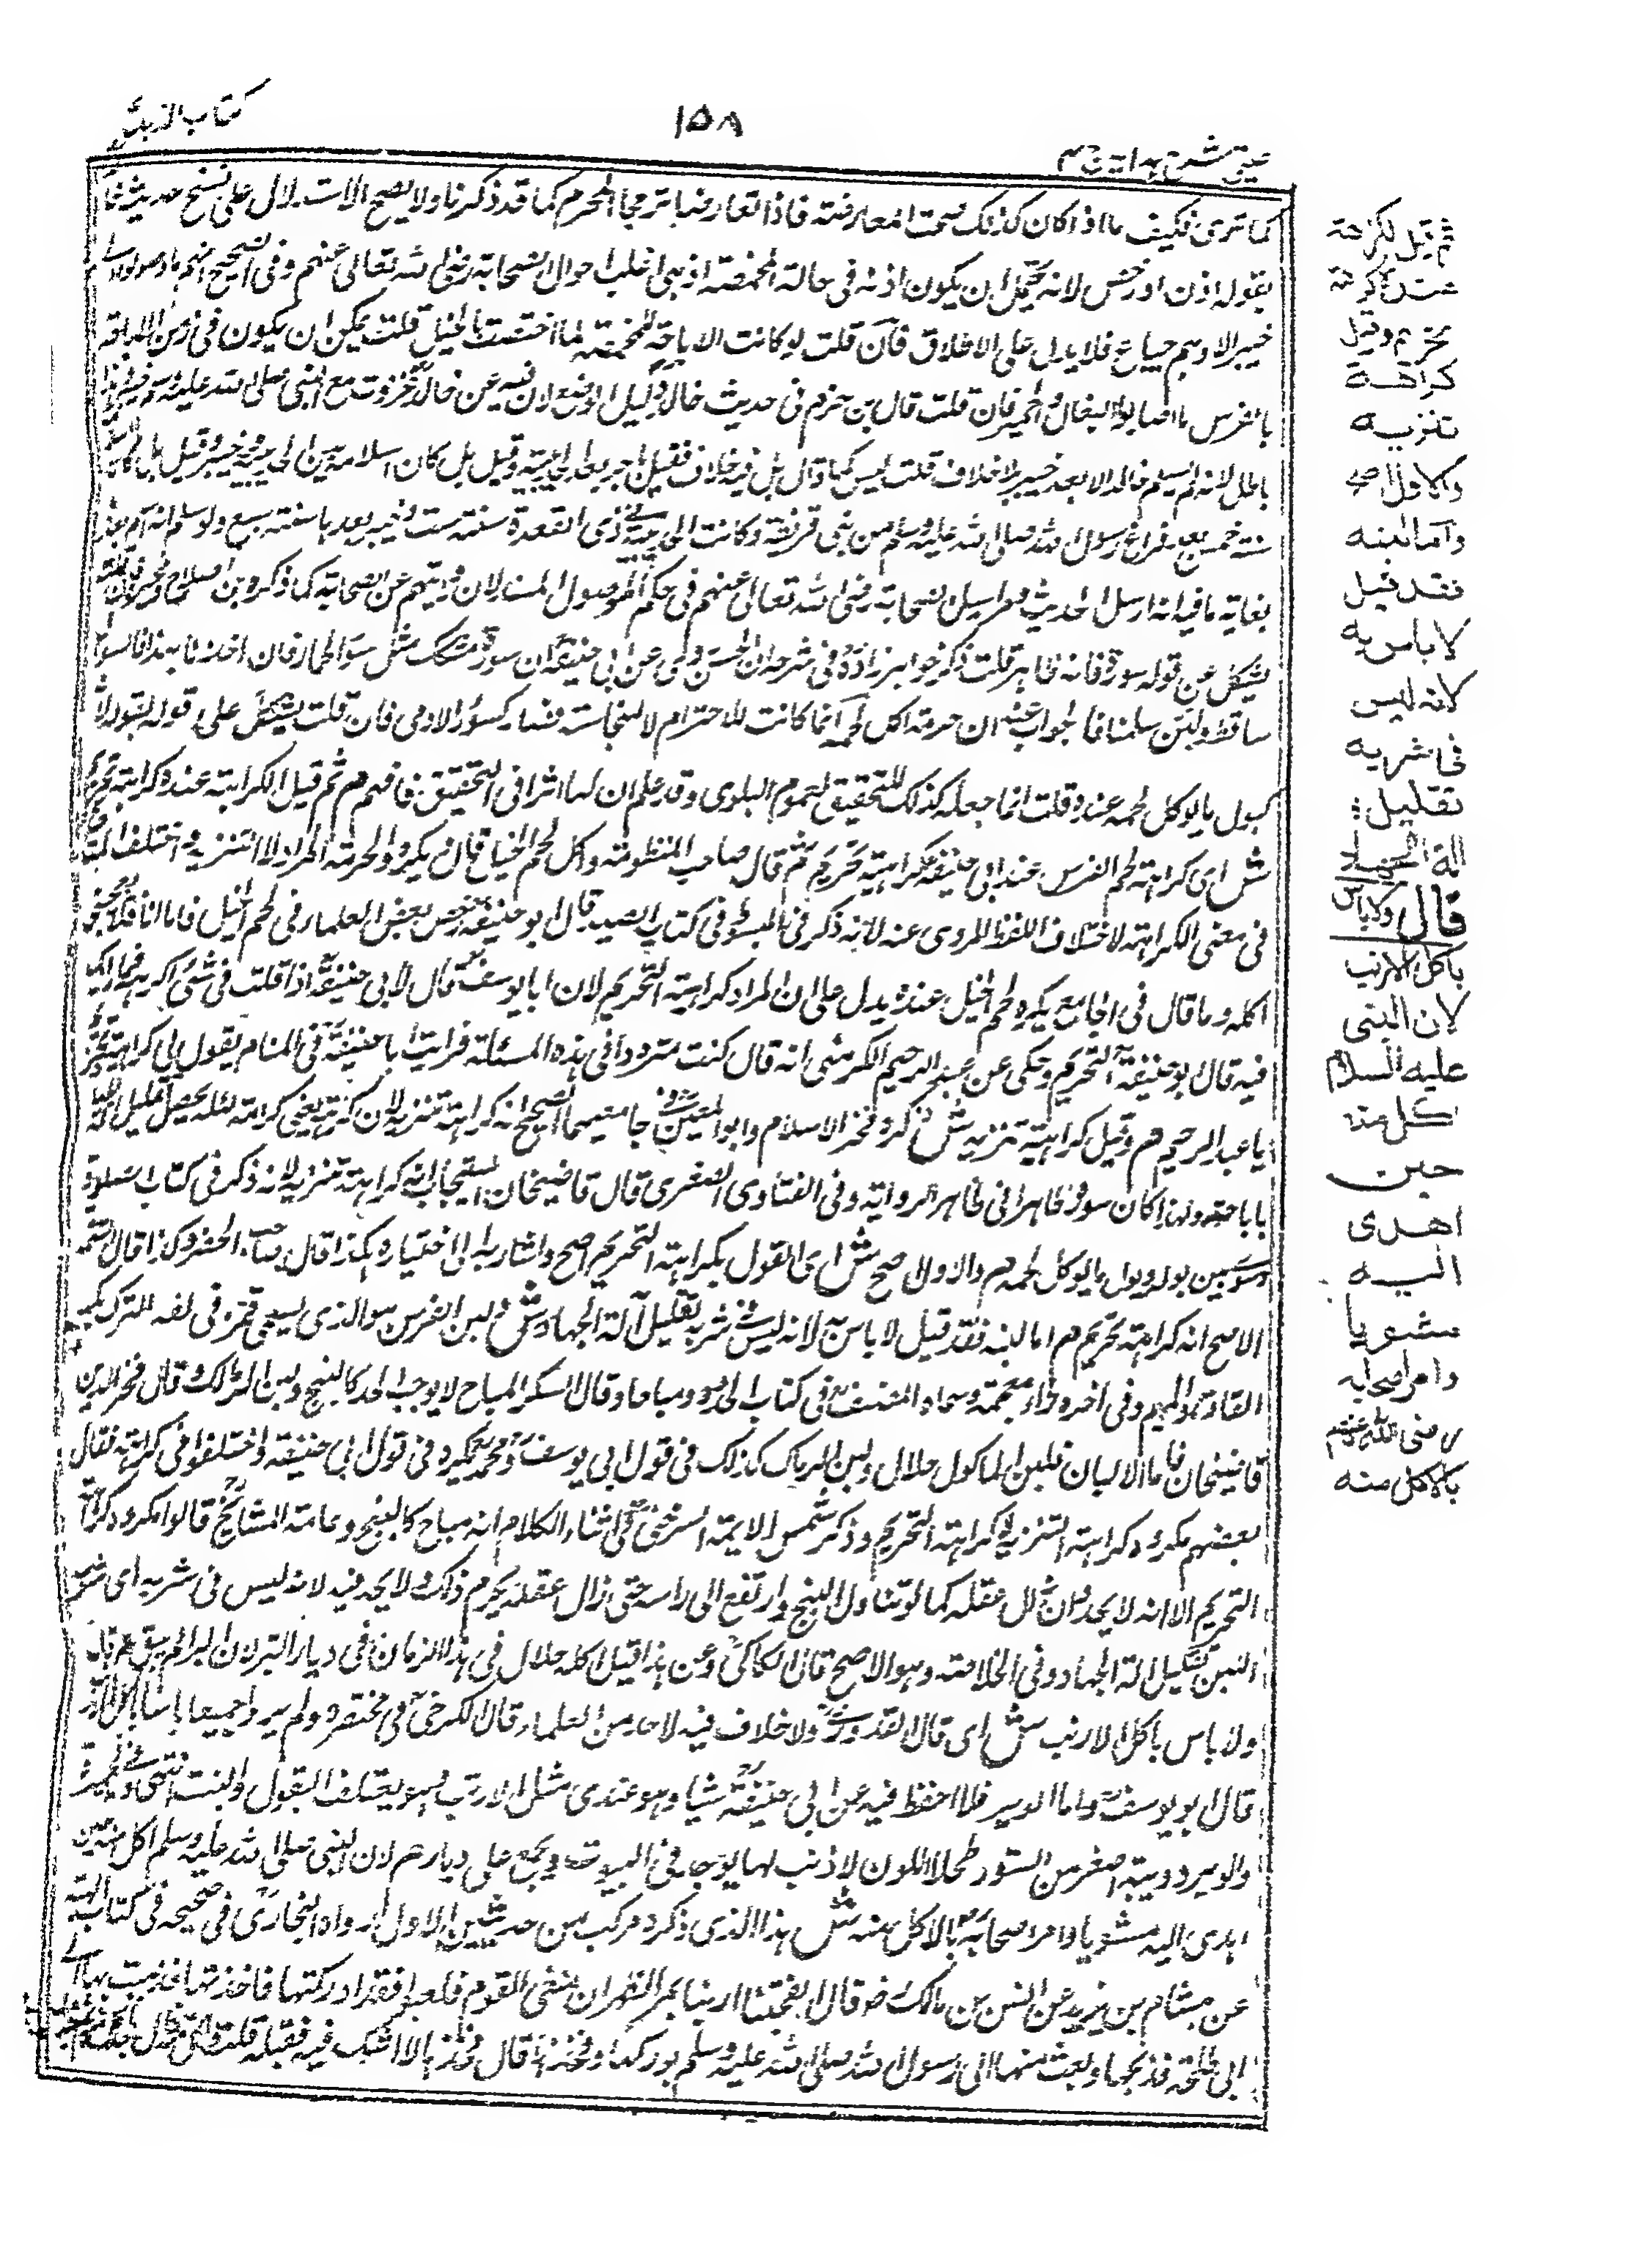 كتاب الذبائح
١٥٨
عينى شرح هداية ج ٤
كما ترى فكيف ما اذا كان كذلك صحت المعارضة فاذا تعارضا ترجح المحرم كما قد ذكرنا ولا يصح الاستدلال على نسخ حديث
بقوله اذن او رخص لانه يحتمل ان يكون اذنه فى حالة المخمصة اذ هى اغلب احوال الصحابة رضى الله تعالى عنهم وفى الصحيح انهم ما وصلوا الى
خيبر الا وهم جياع فلا يدل على الاطلاق فان قلت لو كانت الاباحة للمخمصة لما اختصت بالخيل قلت يمكن ان يكون فى زمن الاباحة
بالفرس ما اصابوا البغال والحمير فان قلت قال بن حزم فى حديث خالد دليل الوضع لان فيه عن خالد غزوت مع النبى صلى الله عليه وسلم خيبر وهذا
باطل لانه لم يسلم خالد الا بعد خيبر بلا خلاف قلت ليس كما قال بل فيه خلاف فقيل هاجر بعد الحديبية وقيل بل كان اسلامه بين الحديبية وخيبر وقيل بل كان
سنة خمس بعد فراغ رسول الله صلى الله عليه وسلم من بنى قريظة وكانت الحديبية فى ذى القعدة سنة ست وخيبر بعدها سنة سبع ولو سلم انه اسلم بعد
بغاية ما فيه انه ارسل الحديث ومراسيل الصحابة رضى الله تعالى عنهم فى حكم الموصول المسند لان روايتهم عن الصحابة كما ذكره بن الصلاح وغيره فان قلت
يشكل عن قوله سوره فانه طاهر قلت ذكر خواهر زاده فى شرحه ان الحسن روى عن ابى حنيفة ان سوره مشكك مثل سور الحمار فان اخذنا بهذا فالسوال
ساقط ولئن سلمنا فالجواب عنه ان حرمة اكل لحمه انما كانت للاحترام لا للنجاسة فصار كسؤر الادمى فان قلت يشكل على قوله بقوله
كبول ما يوكل لحمه عنده قلت انما جعله كذلك للتحقيق لعموم البلوى وقد علم ان لها اثرا فى التحقيق فافهم م ثم قيل الكراهة عنده كراهة تحريم
ش اى كراهة لحم الفرس عند ابى حنيفة كراهية تحريم ثم قال صاحب المنظومة واكل لحم الخيل قال يكره والحرمة المراد لا التنزيه واختلف المشايخ
فى معنى الكراهة لاختلاف اللفظ المروى عنه لانه ذكر فى المبسوط فى كتاب الصيد قال ابو حنيفة رخص بعض العلماء فى لحم الخيل فاما انا فلا يعجبنى
اكله وما قال فى الجامع يكره لحم الخيل عنده يدل على ان المراد كراهية التحريم لان ابا يوسف قال لابى حنيفة اذا قلت فى شئ اكرهه فما رايك
فيه قال ابو حنيفة التحريم وحكى عن عبد الرحيم الكرمينى انه قال كنت مترددا فى هذه المسئلة فرايت ابا حنيفة فى المنام يقول لى كراهة تحريم
يا عبد الرحيم م وقيل كراهية تنزيه ش ذكره فخر الاسلام وابو المعين فى جامعيهما الصحيح انه كراهة تنزيه لان كراهته لمعنى كرامته لئلا يحصل تقليل آلة الجهاد
باباحته ولهذا كان سوره طاهرا فى ظاهر الرواية وفى الفتاوى الصغرى قال قاضيخان الاسبيجابى انه كراهة تنزيه لانه ذكر فى كتاب الصلوة
وسوى بين بوله وبول ما يوكل لحمه م والاول اصح ش اى القول بكراهة التحريم اصح واشار به الى اختياره هكذا قال صاحب الحصر وكذا قال شمس
الاصح انه كراهة تحريم م اما لبنه فقد قيل لا باس به لانه ليس فى شربه تقليل آلة الجهاد ش لبن الفرس هو الذى يسمى قمز فى لغة الترك بكسر
القاف والميم وفى اخره زاء معجمة وسماه المصنف فى كتاب الحدود مباحا وقال السكر المباح لا يوجب الحد كالبنج ولبن الرماك وقال فخر الدين
قاضيخان فاما الالبان فلبن الماكول حلال ولبن الرماك كذلك فى قول ابى يوسف ومحمد ويكره فى قول ابى حنيفة واختلفوا فى كراهته فقال
بعضهم مكروه كراهة التنزيه لا كراهة التحريم وذكر شمس الايمة السرخسى فى اثناء الكلام انه مباح كالبنج وعامة المشايخ قالوا مكروه كراهة
التحريم الا انه لا يحد وان زال عقله كما لو تناول البنج وارتفع الى راسه حتى زال عقله يحرم ذلك ولا يحد فيه لانه ليس فى شربه اى شرب
اللبن تقليل آلة الجهاد وفى الخلاصة وهو الاصح قال الكاكى وعن هذا قيل اكله حلال فى هذا الزمان فى ديار التر لان البرا لم يبق م قال
ولا باس باكل الارنب ش اى قال القدورى ولا خلاف فيه لاحد من العلماء وقال الكرخى فى مختصره ولم يروا جميعا باسا باكل الارنب
قال ابو يوسف واما الوبر فلا احفظ فيه عن ابى حنيفة شيا وهو عندى مثل الارنب هو يعتلف البقول والنبت انتهى
والوبر دويبة اصغر من السنور طحلاء اللون لا ذنب لها يوجد فى البيوت ويجمع على وبار م لان النبى صلى الله عليه وسلم اكل منه حين
اهدى اليه مشويا وامر اصحابه بالاكل منه ش هذا الذى ذكره مركب من حديثين الاول رواه البخارى فى صحيحه فى كتاب الهبة
عن هشام بن يزيد عن انس بن مالك رض قال انفجنا ارنبا بمر الظهران فسعى القوم فلغبوا فقد ادركتها فاخذتها فذهبت بها الى
ابى طلحة فذبحها وبعث منها الى رسول الله صلى الله عليه وسلم بوركها وفخذيها قال فخذيها لا اشك فيه فقبله قلت واكل منه قال
ثم قيل الكراهة
عنده كراهة
تحريم وقيل
كراهة
تنزيه
والاول اصح
واما لبنه
فقد قيل
لا باس به
لانه ليس
فى شربه
تقليل
آلة الجهاد
قال ولا باس
باكل الارنب
لان النبى
عليه السلام
اكل منه
حين
اهدى
اليه
مشويا
وامر اصحابه
رضى الله عنهم
بالاكل منه